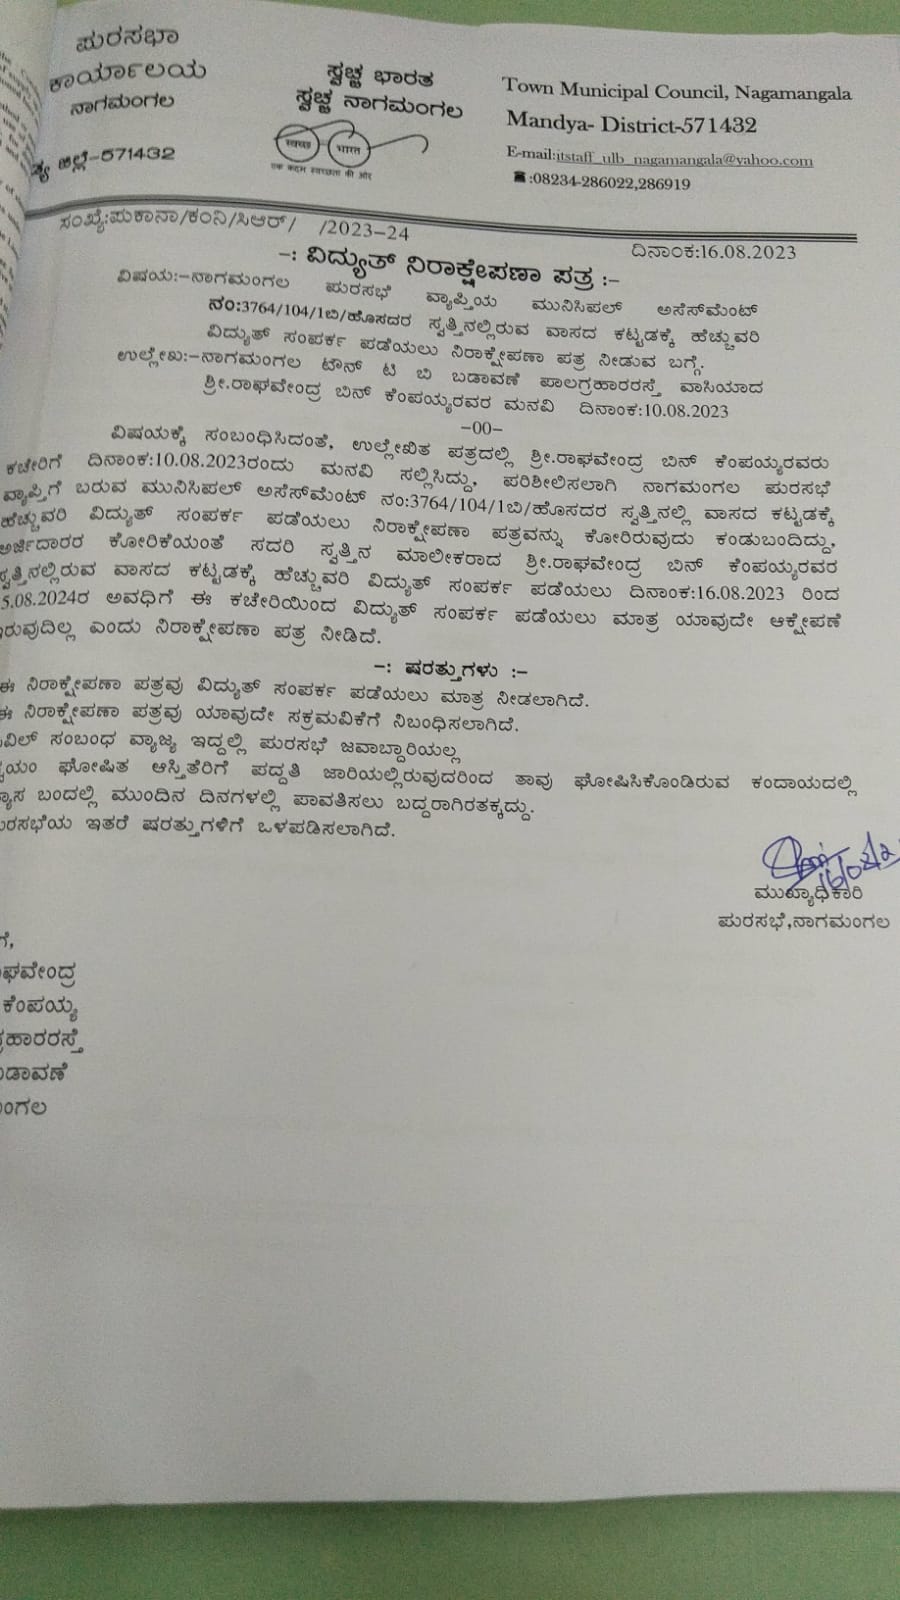 ಪುರಸಭಾ
ಕಾರ್ಯಾಲಯ
ನಾಗಮಂಗಲ
ಜಿಲ್ಲೆ-571432
ಸ್ವಚ್ಛ ಭಾರತ
ಸ್ವಚ್ಛ ನಾಗಮಂಗಲ
स्वच्छ भारत
एक कदम स्वच्छता की ओर
Town Municipal Council, Nagamangala
Mandya- District-571432
E-mail:itstaff_ulb_nagamangala@yahoo.com
☎:08234-286022,286919
ಸಂಖ್ಯೆ:ಪುಕಾನಾ/ಕಂನಿ/ಸಿಆರ್/ /2023-24
ದಿನಾಂಕ:16.08.2023
-: ವಿದ್ಯುತ್ ನಿರಾಕ್ಷೇಪಣಾ ಪತ್ರ :-
ವಿಷಯ:-ನಾಗಮಂಗಲ ಪುರಸಭೆ ವ್ಯಾಪ್ತಿಯ ಮುನಿಸಿಪಲ್ ಅಸೆಸ್‌ಮೆಂಟ್
ನಂ:3764/104/1ಬಿ/ಹೊಸದರ ಸ್ವತ್ತಿನಲ್ಲಿರುವ ವಾಸದ ಕಟ್ಟಡಕ್ಕೆ ಹೆಚ್ಚುವರಿ
ವಿದ್ಯುತ್ ಸಂಪರ್ಕ ಪಡೆಯಲು ನಿರಾಕ್ಷೇಪಣಾ ಪತ್ರ ನೀಡುವ ಬಗ್ಗೆ.
ಉಲ್ಲೇಖ:-ನಾಗಮಂಗಲ ಟೌನ್ ಟಿ ಬಿ ಬಡಾವಣೆ ಪಾಲಗ್ರಹಾರರಸ್ತೆ ವಾಸಿಯಾದ
ಶ್ರೀ.ರಾಘವೇಂದ್ರ ಬಿನ್ ಕೆಂಪಯ್ಯರವರ ಮನವಿ ದಿನಾಂಕ:10.08.2023
-00-
ವಿಷಯಕ್ಕೆ ಸಂಬಂಧಿಸಿದಂತೆ, ಉಲ್ಲೇಖಿತ ಪತ್ರದಲ್ಲಿ ಶ್ರೀ.ರಾಘವೇಂದ್ರ ಬಿನ್ ಕೆಂಪಯ್ಯರವರು
ಕಚೇರಿಗೆ ದಿನಾಂಕ:10.08.2023ರಂದು ಮನವಿ ಸಲ್ಲಿಸಿದ್ದು, ಪರಿಶೀಲಿಸಲಾಗಿ ನಾಗಮಂಗಲ ಪುರಸಭೆ
ವ್ಯಾಪ್ತಿಗೆ ಬರುವ ಮುನಿಸಿಪಲ್ ಅಸೆಸ್‌ಮೆಂಟ್ ನಂ:3764/104/1ಬಿ/ಹೊಸದರ ಸ್ವತ್ತಿನಲ್ಲಿ ವಾಸದ ಕಟ್ಟಡಕ್ಕೆ
ಹೆಚ್ಚುವರಿ ವಿದ್ಯುತ್ ಸಂಪರ್ಕ ಪಡೆಯಲು ನಿರಾಕ್ಷೇಪಣಾ ಪತ್ರವನ್ನು ಕೋರಿರುವುದು ಕಂಡುಬಂದಿದ್ದು,
ಅರ್ಜಿದಾರರ ಕೋರಿಕೆಯಂತೆ ಸದರಿ ಸ್ವತ್ತಿನ ಮಾಲೀಕರಾದ ಶ್ರೀ.ರಾಘವೇಂದ್ರ ಬಿನ್ ಕೆಂಪಯ್ಯರವರ
ಸ್ವತ್ತಿನಲ್ಲಿರುವ ವಾಸದ ಕಟ್ಟಡಕ್ಕೆ ಹೆಚ್ಚುವರಿ ವಿದ್ಯುತ್ ಸಂಪರ್ಕ ಪಡೆಯಲು ದಿನಾಂಕ:16.08.2023 ರಿಂದ
5.08.2024ರ ಅವಧಿಗೆ ಈ ಕಚೇರಿಯಿಂದ ವಿದ್ಯುತ್ ಸಂಪರ್ಕ ಪಡೆಯಲು ಮಾತ್ರ ಯಾವುದೇ ಆಕ್ಷೇಪಣೆ
ಇರುವುದಿಲ್ಲ ಎಂದು ನಿರಾಕ್ಷೇಪಣಾ ಪತ್ರ ನೀಡಿದೆ.
-: ಷರತ್ತುಗಳು :-
ಈ ನಿರಾಕ್ಷೇಪಣಾ ಪತ್ರವು ವಿದ್ಯುತ್ ಸಂಪರ್ಕ ಪಡೆಯಲು ಮಾತ್ರ ನೀಡಲಾಗಿದೆ.
ಈ ನಿರಾಕ್ಷೇಪಣಾ ಪತ್ರವು ಯಾವುದೇ ಸಕ್ರಮವಿಕೆಗೆ ನಿಬಂಧಿಸಲಾಗಿದೆ.
ಸಿವಿಲ್ ಸಂಬಂಧ ವ್ಯಾಜ್ಯ ಇದ್ದಲ್ಲಿ ಪುರಸಭೆ ಜವಾಬ್ದಾರಿಯಲ್ಲ
ಸ್ವಯಂ ಘೋಷಿತ ಆಸ್ತಿತೆರಿಗೆ ಪದ್ದತಿ ಜಾರಿಯಲ್ಲಿರುವುದರಿಂದ ತಾವು ಘೋಷಿಸಿಕೊಂಡಿರುವ ಕಂದಾಯದಲ್ಲಿ
ಬಂದಲ್ಲಿ ಮುಂದಿನ ದಿನಗಳಲ್ಲಿ ಪಾವತಿಸಲು ಬದ್ದರಾಗಿರತಕ್ಕದ್ದು.
ಪುರಸಭೆಯ ಇತರೆ ಷರತ್ತುಗಳಿಗೆ ಒಳಪಡಿಸಲಾಗಿದೆ.
ಮುಖ್ಯಾಧಿಕಾರಿ
ಪುರಸಭೆ,ನಾಗಮಂಗಲ
ಗೆ,
ಘವೇಂದ್ರ
ಕೆಂಪಯ್ಯ
ಗ್ರಹಾರರಸ್ತೆ
ಡಾವಣೆ
ಂಗಲ